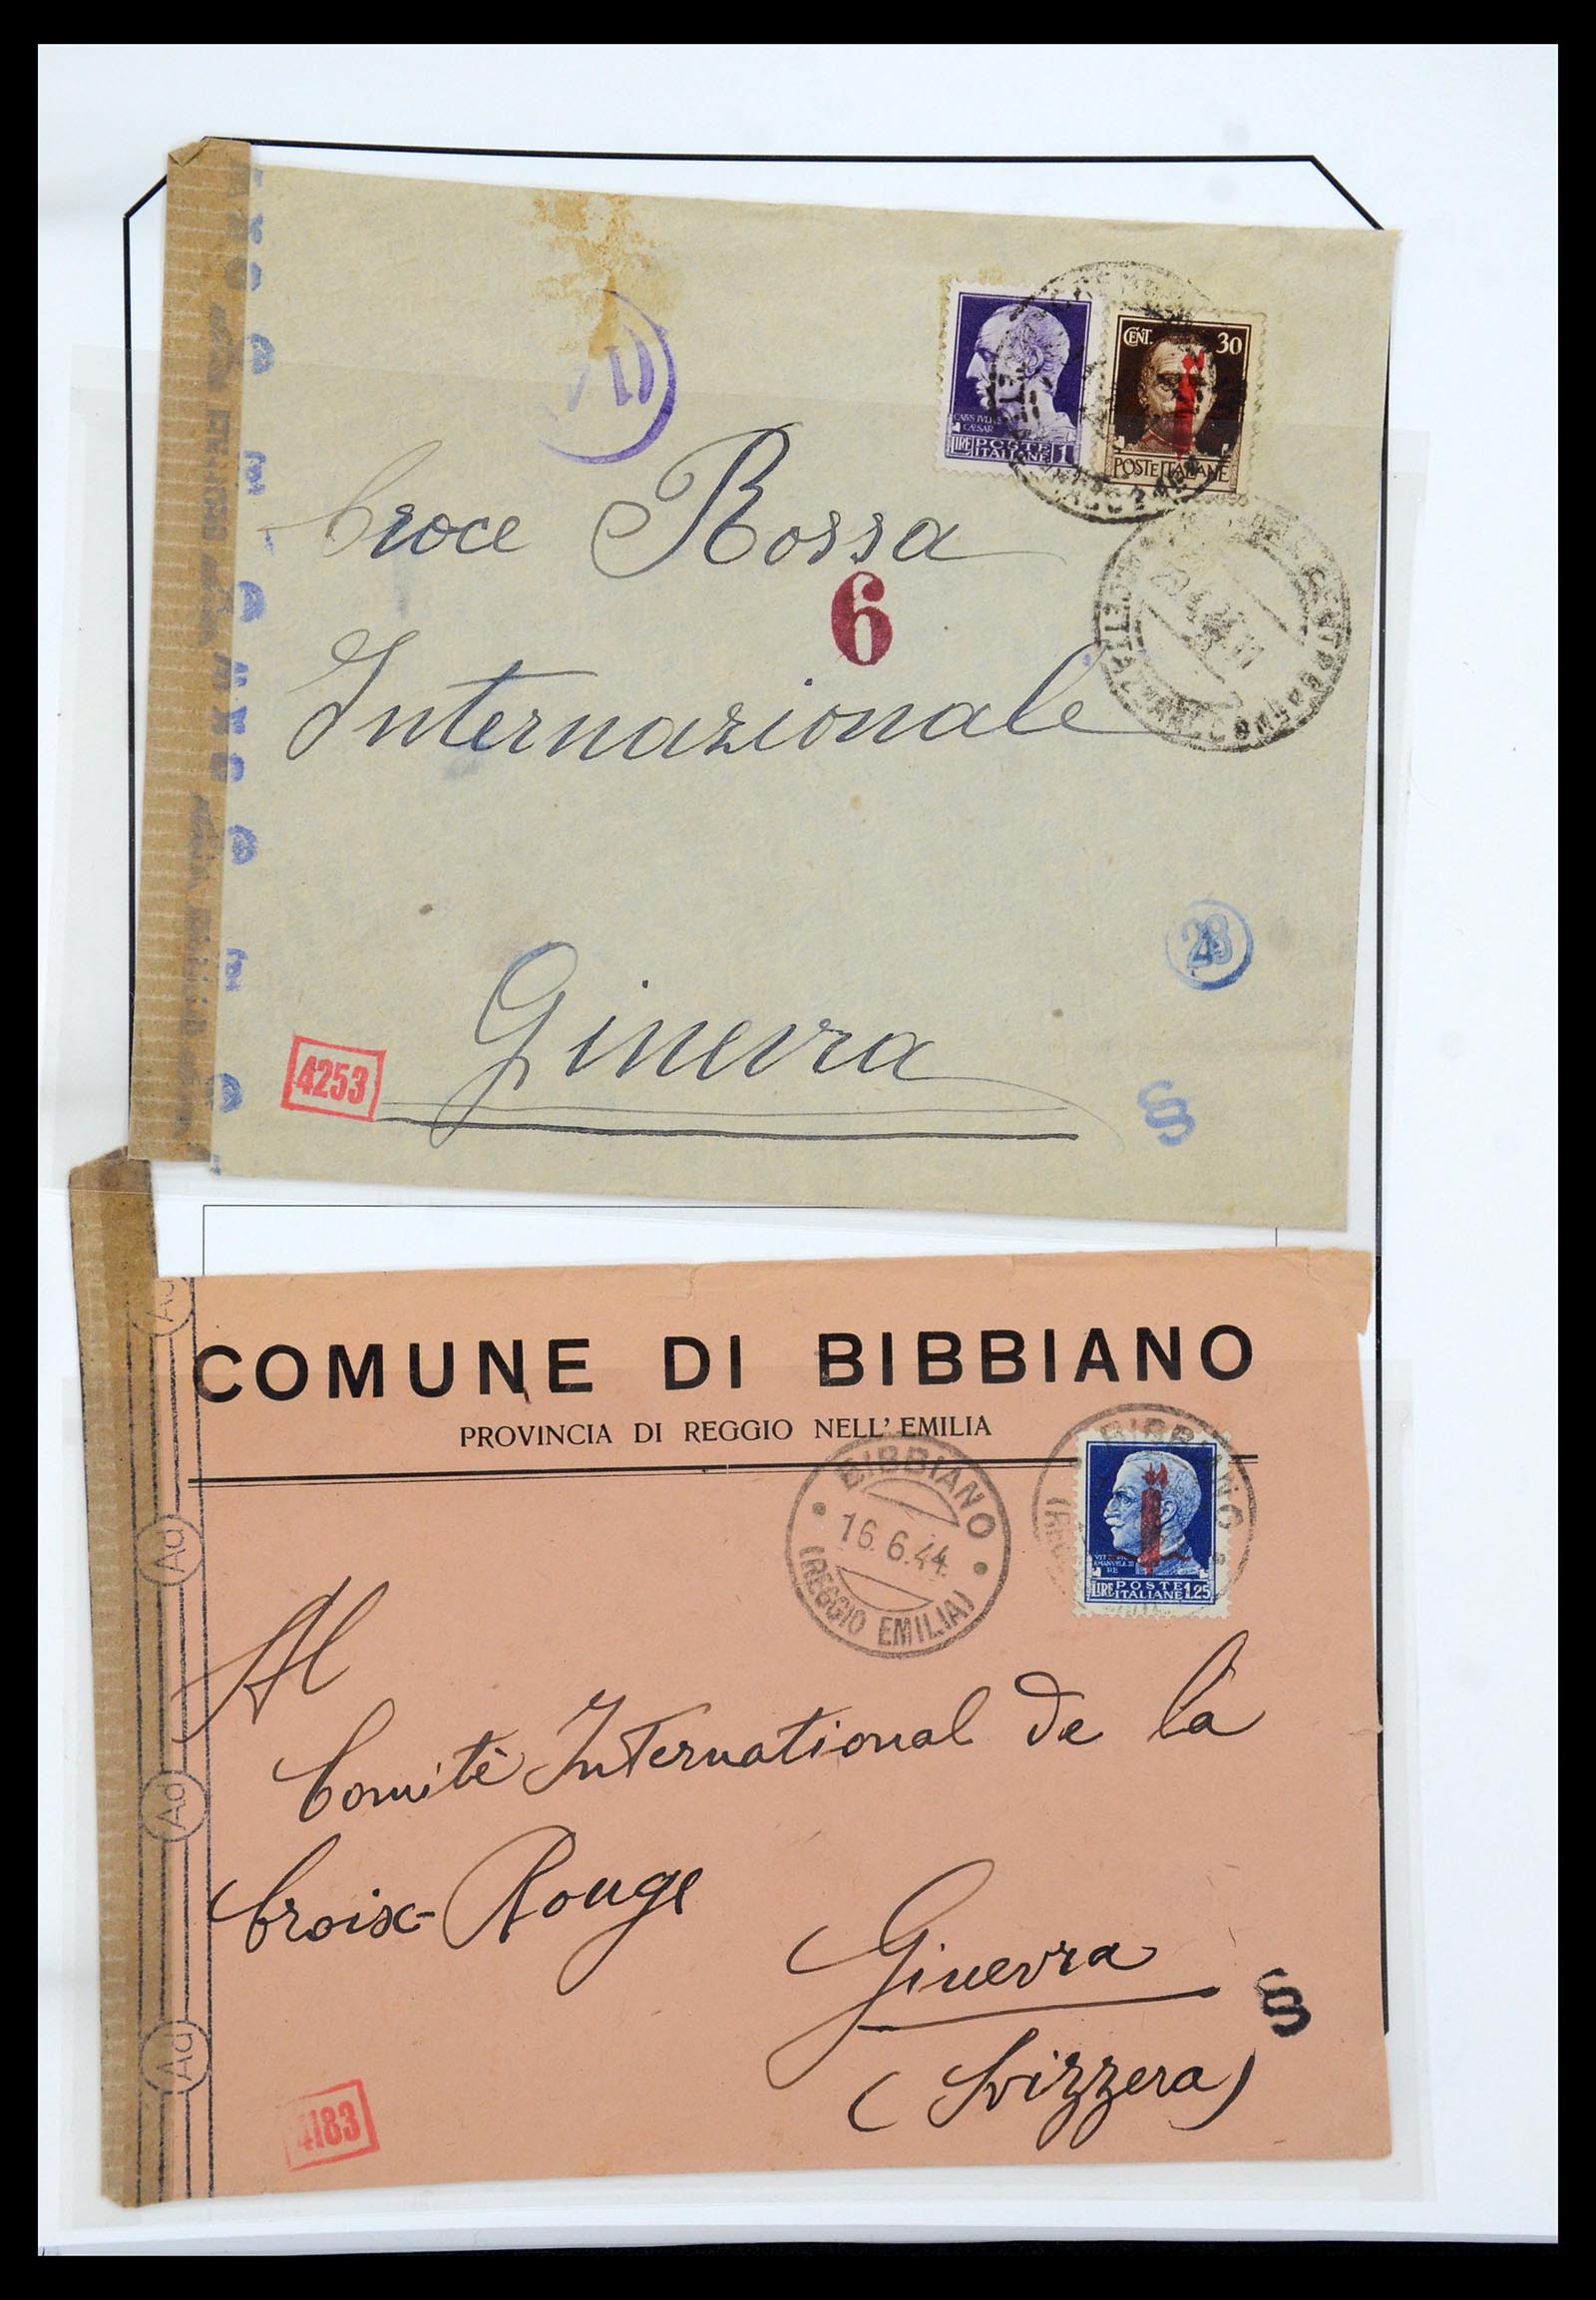 CENT. 30
POSTE ITALIANE
CAESAR
LIRE POSTE ITALIANE 1
Croce Rossa
6
Internazionale
28
Ginevra
4253
§
COMUNE DI BIBBIANO
PROVINCIA DI REGGIO NELL'EMILIA
BIBBIANO
16.6.44
(REGGIO EMILIA)
BIBBIANO
LIRE POSTE ITALIANE 1.25
Al
Comitè International de la
Croix-Rouge
Ginevra
§
(Svizzera)
4183
Ad
Ad
Ad
Ad